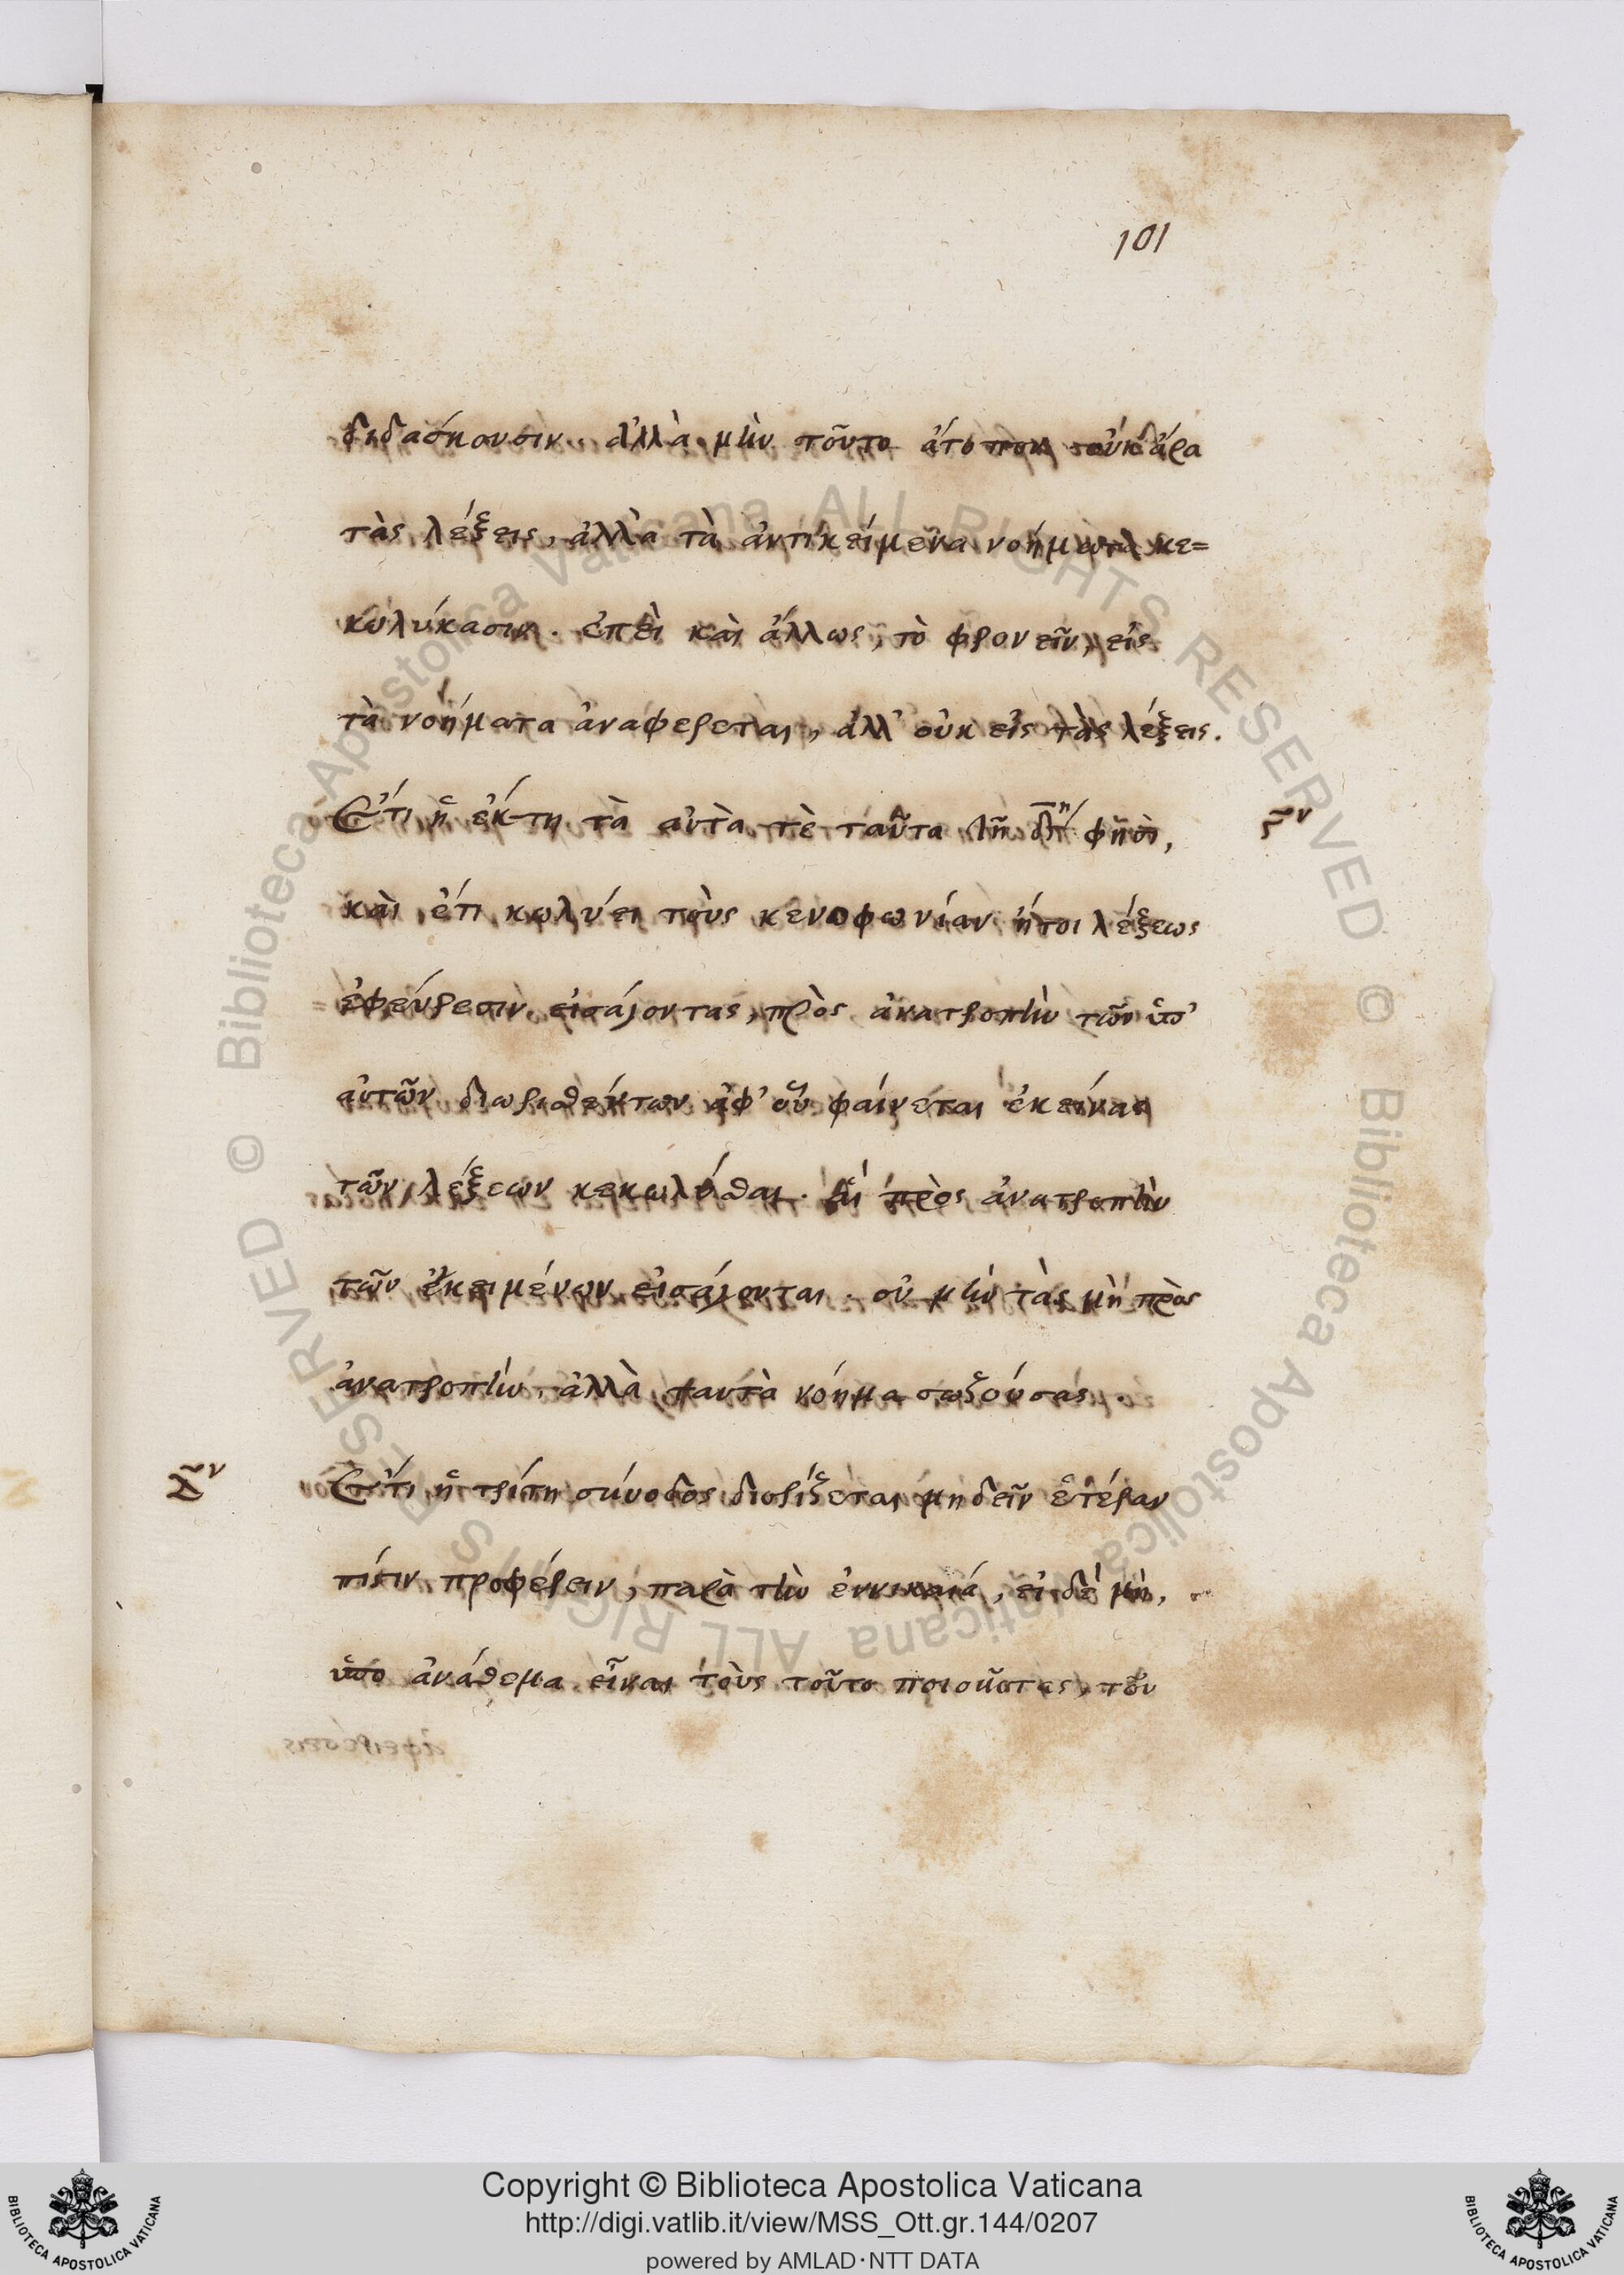 101
διδάσκουσιν. ἀλλὰ μὴν τοῦτο ἄτοπον οὐκ ἄρα
τὰς λέξεις, ἀλλὰ τὰ ἀντικείμενα νοήματα κε=
κωλύκασιν. ἐπεὶ καὶ ἄλλως, τὸ φρονεῖν, εἰς
τὰ νοήματα ἀναφέρεται, ἀλλ' οὐκ εἰς τὰς λέξεις.
Ἔτι ἡ ἕκτη τὰ αὐτὰ τὲ ταῦτα τῇ φησι,
καὶ ἔτι κωλύει τοὺς κενοφωνίαν ἤτοι λέξεως
ἐφεύρεσιν εἰσάγοντας, πρὸς ἀνατροπὴν τῶν ὑπ'
αὐτῶν διορισθέντων ἀφ' οὗ φαίνεται ἐκείνας
τῶν λέξεων κεκωλύσθαι. αἳ πρὸς ἀνατροπὴν
τῶν ἐκκειμένων εἰσάγονται. οὐ μὴν τὰς μὴ πρὸς
ἀνατροπὴν ἀλλὰ ταυτὰ νόημα σωζούσας.
Ἔτι ἡ τρίτη σύνοδος διορίζεται μηδεῖν ἑτέραν
πίστιν προφέρειν, παρὰ τὴν ἐν νικαία, εἰ δὲ μὴ,
ὑπὸ ἀνάθεμα εἶναι τοὺς τοῦτο ποιοῦντας, τὸν
Copyright © Biblioteca Apostolica Vaticana
http://digi.vatlib.it/view/MSS_Ott.gr.144/0207
powered by AMLAD·NTT DATA
BIBLIOTECA APOSTOLICA VATICANA
BIBLIOTECA APOSTOLICA VATICANA
© Biblioteca Apostolica Vaticana ALL RIGHTS RESERVED
© Biblioteca Apostolica Vaticana ALL RIGHTS RESERVED